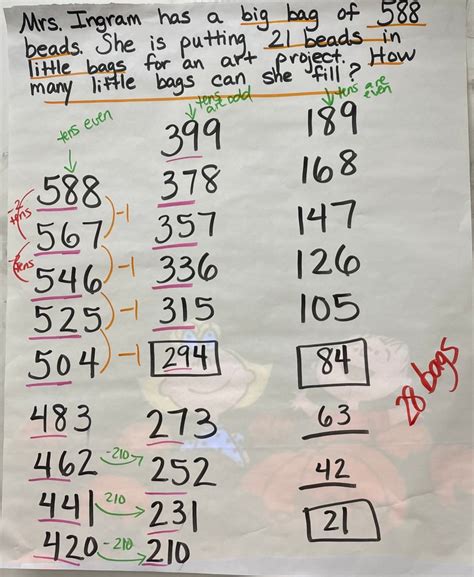 Mrs. Ingram has a big bag of 588
beads. She is putting 21 beads in
little bags for an art project. How
many little bags can she fill?
tens even
588
567
546
525
504
483
462
441
420
-2 tens
-2 tens
-1
-1
-1
-1
tens are odd
399
378
357
336
315
294
273
252
231
210
-210
210
-210
tens are even
189
168
147
126
105
84
63
42
21
28 bags